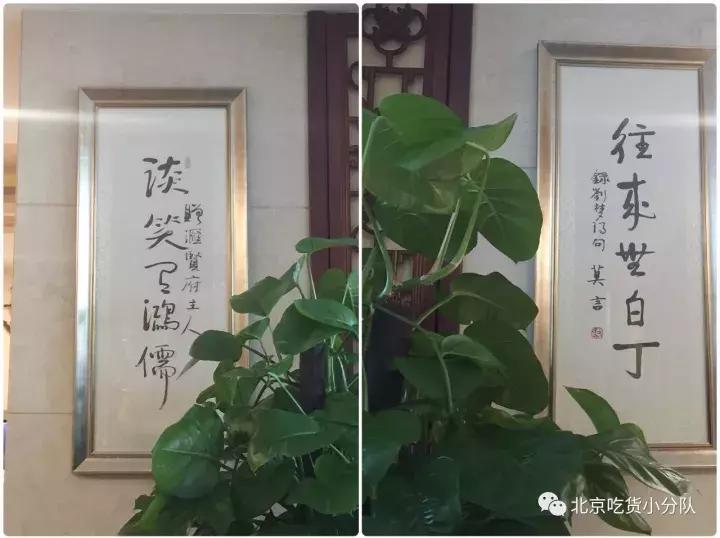 谈笑有鸿儒
赠滙贤府主人
往来无白丁
录刘梦得句 莫言
北京吃货小分队